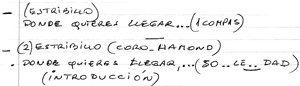 - (ESTRIBILLO)
DONDE QUIERES LLEGAR...(1COMPAS)
- (2) ESTRIBILLO (CORO_HAMOND)
- DONDE QUIERAS LLEGAR,...(SO..LE..DAD)
(INTRODUCCIÓN)